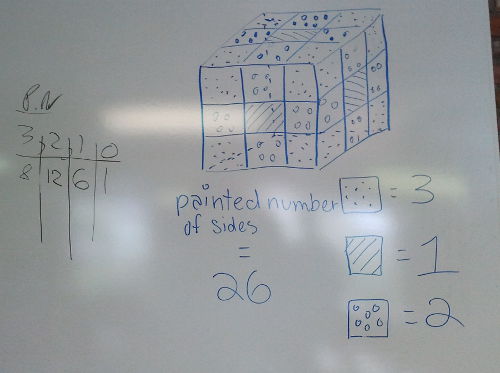 P.N
3 2 1 0
8 12 6 1
painted number
of sides
=
26
= 3
= 1
= 2